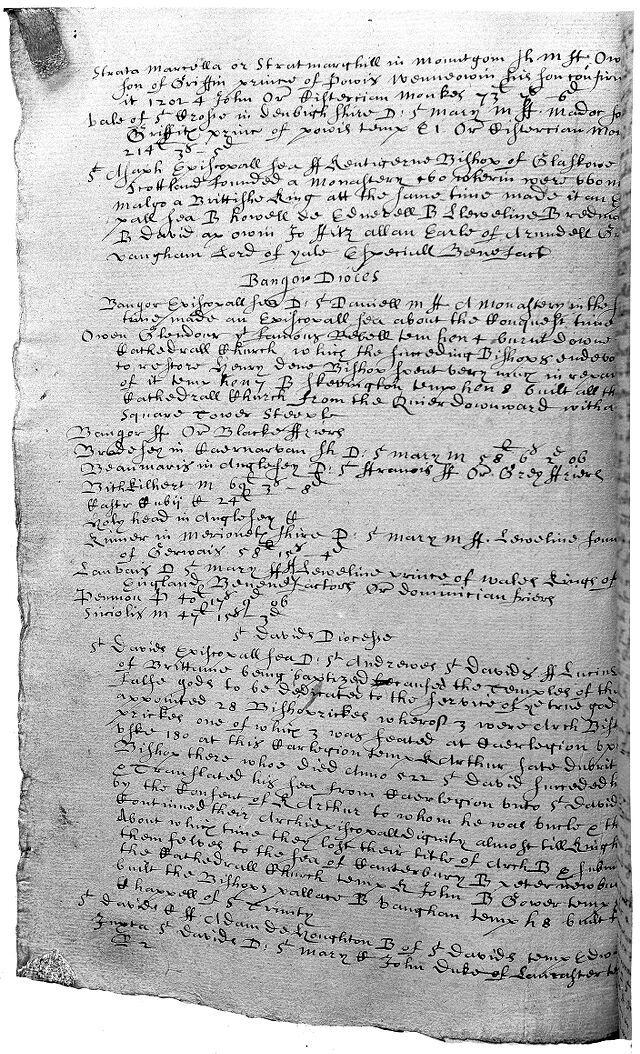 Strata Marcella or Stratmarghill in Mountgom sh M ff Ow
son of Griffin prince of Powis Wenneowin his son confirm
it 1202 4 John Or Cistercian Monkes 73l 7s 6d
Vale of St Crosse in denbigh shire D: St Mary M ff Madoc so
Griffith prince of powis temp E1 Or Cistercian Mon
214l 3s 5d
St Asaph Episcopall sea ff Kentigerne Bishop of Glaskowe
Scottland founded a Monastery wherin were
Malgo a Brittishe King att the same time made it an E
pall sea B howell de Edneuell B Lleweline Bredm
B david ap owin Jo ffitz allan Earle of Arundell Gr
vaughan Lord of yale Especiall Benefact
Bangor Dioces
Bangor Episcopall sea D: St Daniell M ff A Monastery in the
time made an Episcopall sea about the Conquest time
Owen Glendour ye famous Rebell tem hen 4 burnt downe
Cathedrall Church which the succeding Bishops endevo
to restore Henry dene Bishop spent very much in repar
of it temp hen 7 B Skevington temp hen 8 built all the
Cathedrall Church from the Quier downward with a
Square Tower Steeple
Bangor ff Or Blacke ffriers
Bradesey in Caernarvan sh D: St Mary M 58l 6s 2d ob
Beaumaris in Anglesey D: St ffrancis ff Or Grey ffriers
Bithkilhert M 69l 3s 8d
Castr Cubij C 24l
Holy head in Anglesey C
Kinner in Merioneth shire D: St Mary M ff Leweline soun
of Gervais 58l 15s 4d
Lanvais D St Mary ff Leweline prince of Wales Kings of
England Benefactors Or dominician friers
Penmon P 40l 17s 9d ob
Siriolis M 47l 15s 3d
St Davids Diocesse
St Davids Episcopall sea D: St Andrewes St Davids ff Lucius
of Brittaine being baptized caused the Temples of the
false gods to be dedicated to the service of ye true god
appointed 28 Bishoprickes wherof 3 were Arch Bish
prickes one of which 3 was seated at Caerlegion vp
Vske 180 at this Carlegion temp K Arthur sate Dubrit
Bishop there whoe died Anno 522 St David succeded h
& Translated his sea from Caerlegion vnto St David
by the Consent of K Arthur to whom he was vncle & th
Continued their Archiepiscopall dignity almost till King h
About which time they lost their title of Arch B & subm
them selves to the sea of Canterbury B Peter new bui
the Cathedrall Church temp K John B Gower temp
built the Bishops pallace B Vaughan temp h 8 built t
Chappell of St Trinity
St davids C ff Adam de Houghton B of St Davids temp Edw
Juxta St Davids D: St Mary C John Duke of Lancaster te
R 2